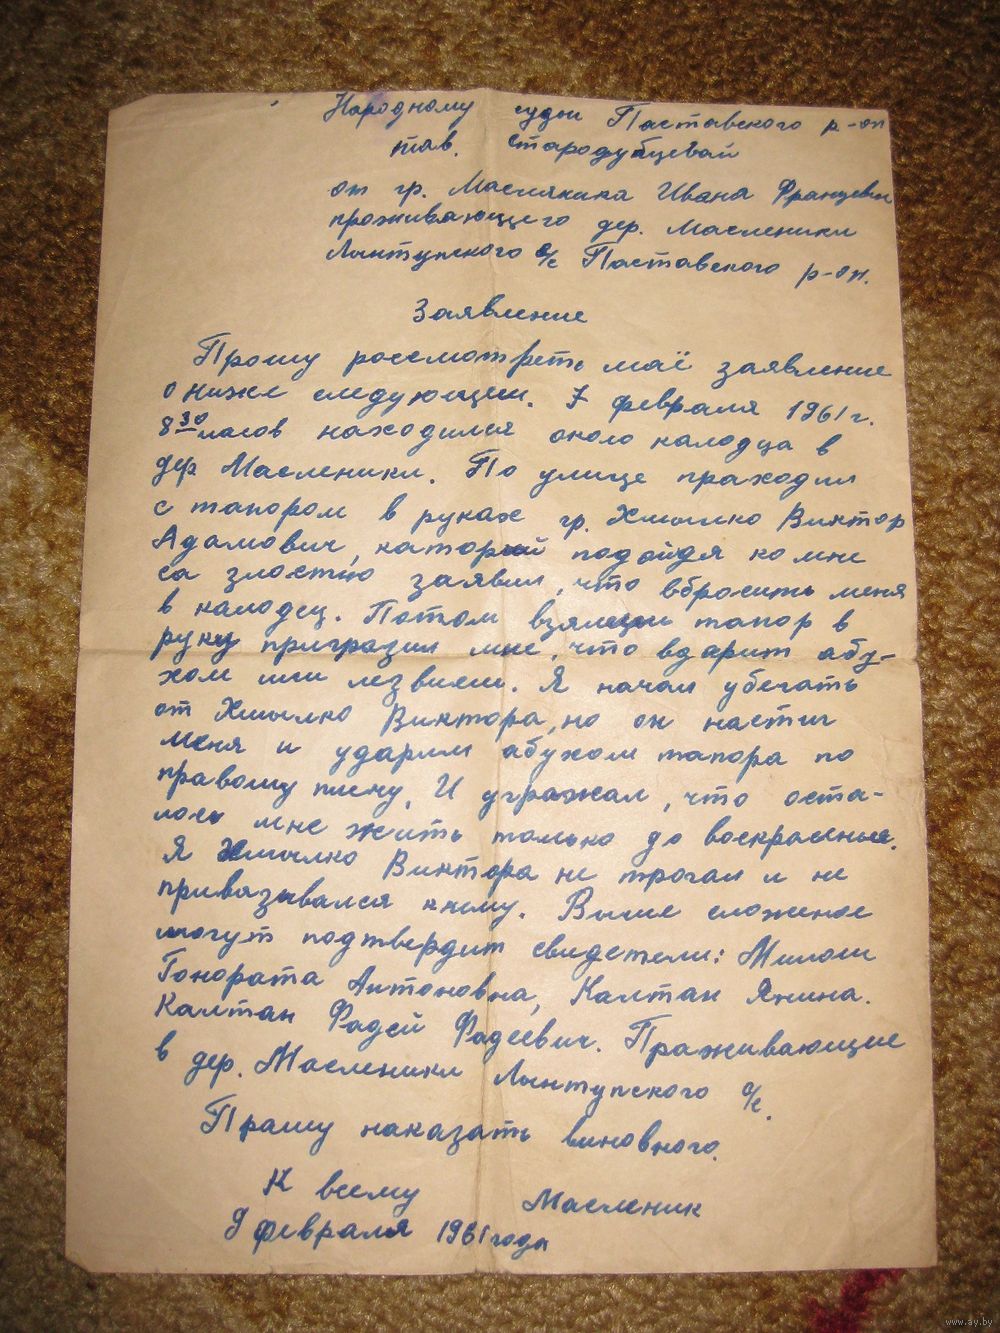 Народному судьи Паставского р-он
тав. Стародубцевай
от гр. Маслякика Ивана Францеви
проживающего дер. Масленики
Лынтупского с/с Паставского р-он.
Заявление
Прошу россмотреть маё заявление
о ниже следующем. 7 февраля 1961 г.
8 30 часов находился около калодца в
дер Масленики. По улице праходил
с тапором в руках гр. Хмылко Виктор
Адамович, каторый подойдя ко мне
са злостью заявил, что вбросить меня
в калодец. Потом взявши тапор в
руку пригразил мне, что вдарит абу-
хом или лезвием. Я начал убегать
от Хмылко Виктора, но он настиг
меня и ударил абухом тапора по
правому плечу. И угражал, что оста-
лось мне жить только до воскрасенье.
Я Хмылко Виктора не трогал и не
привязывался к нему. Выше сложеное
могут подтвердит свидетели: Милош
Гонората Антоновна, Калтан Янина.
Калтан Фадей Фадеевич. Праживающие
в дер. Масленики Лынтупского с/с.
Прашу наказать виновного.
К всему Масленик
9 февраля 1961 года
www.ay.by